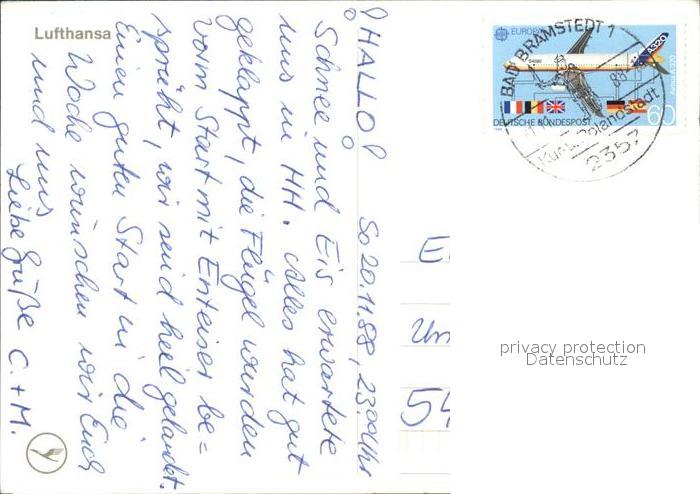 Lufthansa
So 20.11.88, 23.00 Uhr
HALLO!
Schnee und Eis erwartete
uns in HH. Alles hat gut
geklappt, die Flügel wurden
vorm Start mit Enteiser be=
sprüht, wir sind heil gelandet.
Einen guten Start in die
Woche wünschen wir Euch
und uns
Liebe Grüße C. + M.
EUROPA
A320
DEUTSCHE BUNDESPOST
60
BAD BRAMSTEDT 1
Rolandstadt
2357
E
Un
54
privacy protection
Datenschutz